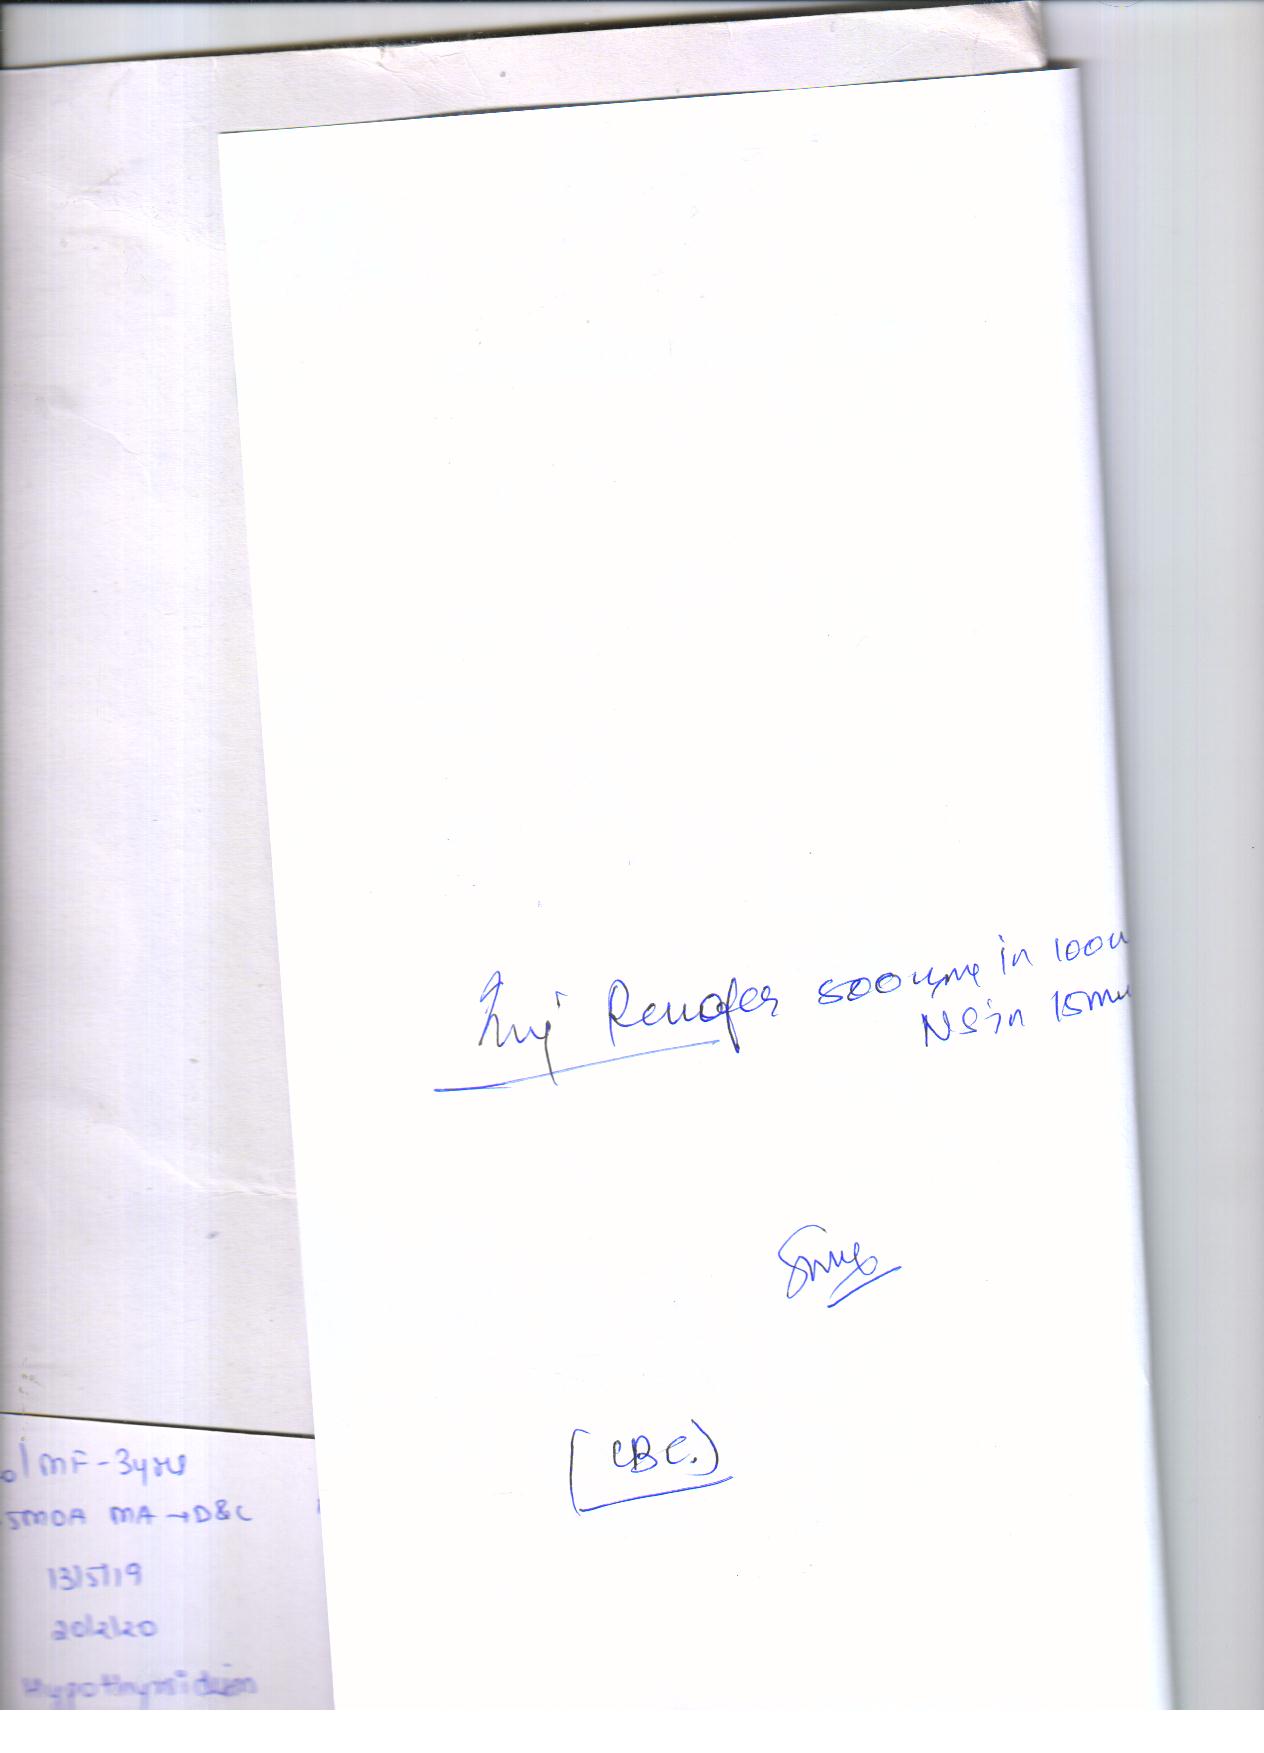 Inj Renofer 500 in 100
NS in 15
[CBC.)
MF - 3yrs
5MOA MA → D&C
13/5/19
20/2/20
Hypothyroidism